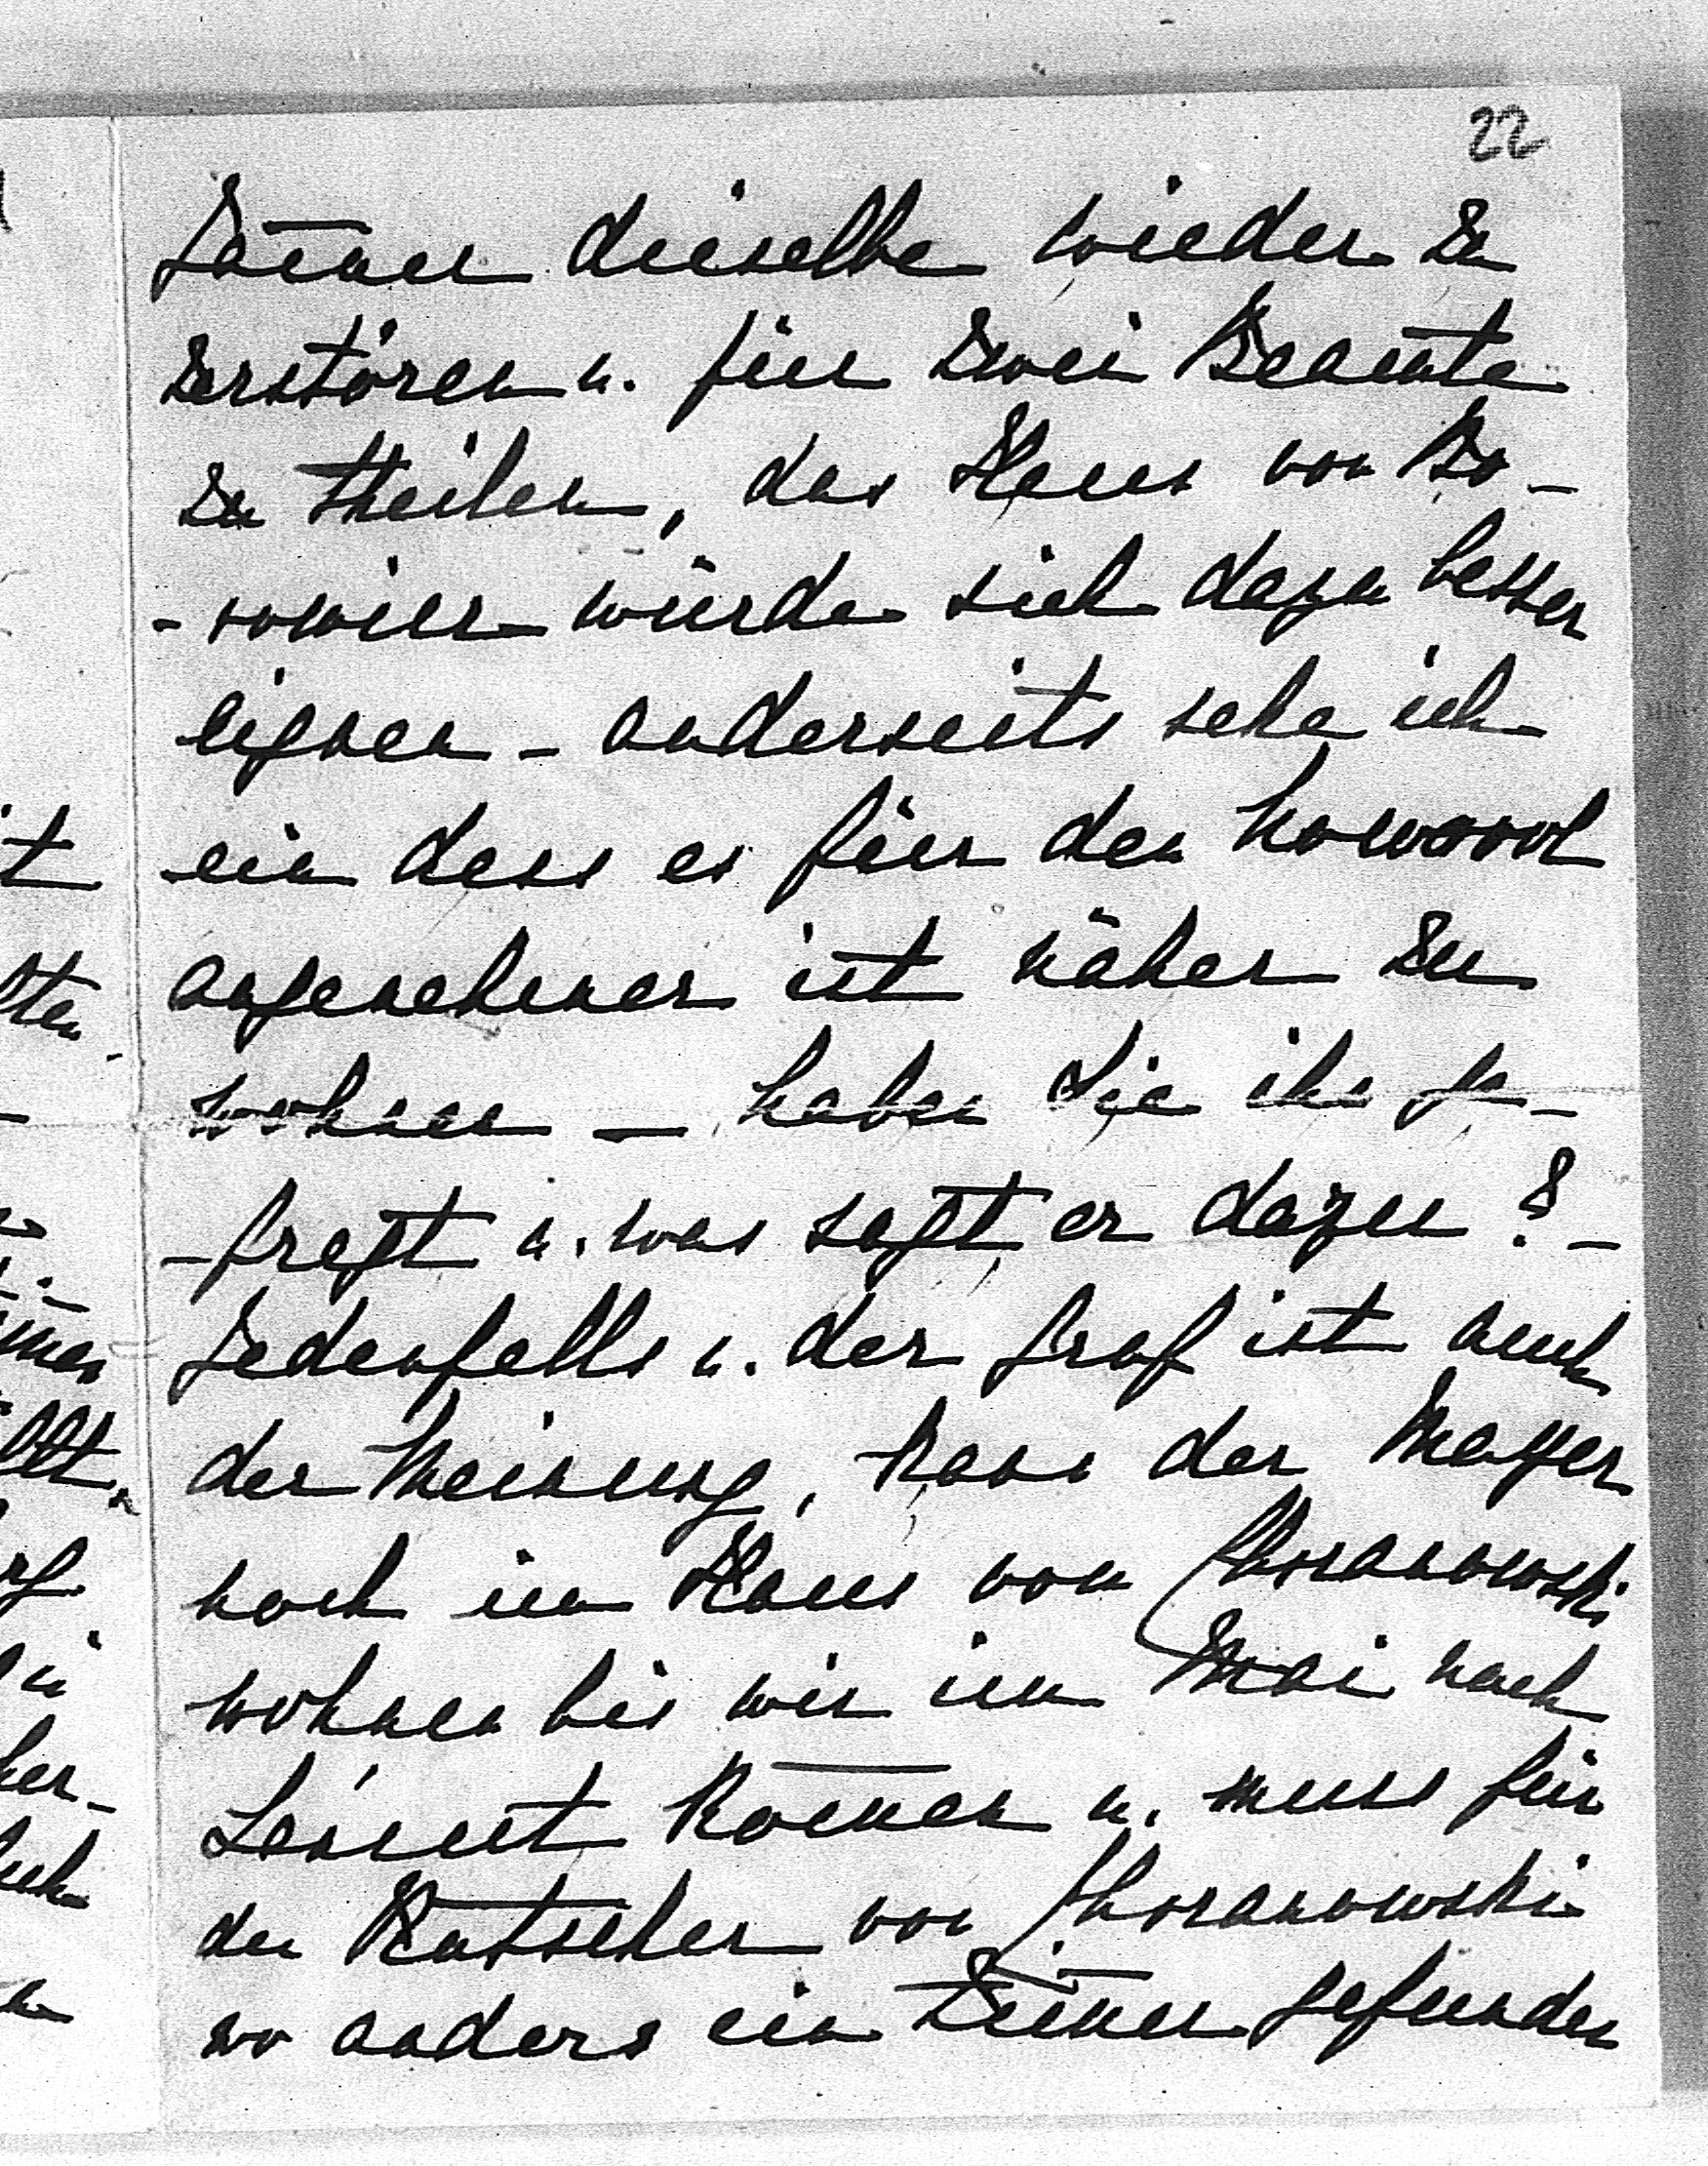 22
Jam̄er dieselbe wieder zu
zerstören u. für zwei Beamte
zu theilen, das Haus von Bo-
-rowier würde sich dazu besser
eignen - anderseits sehe ich
ein dass es für den
angenehmer ist näher zu
wohnen — haben Sie ihn ge-
-fragt u. was sagt er dazu? -
Jedenfalls u. der Graf ist auch
der Meinung, kann der Mayer
noch im Haus von Choranowski
wohnen bis wir im Mai nach
Łańcut kom̄en u. muss für
den Kutscher von Choranowski
wo anders ein Zim̄er gefunden